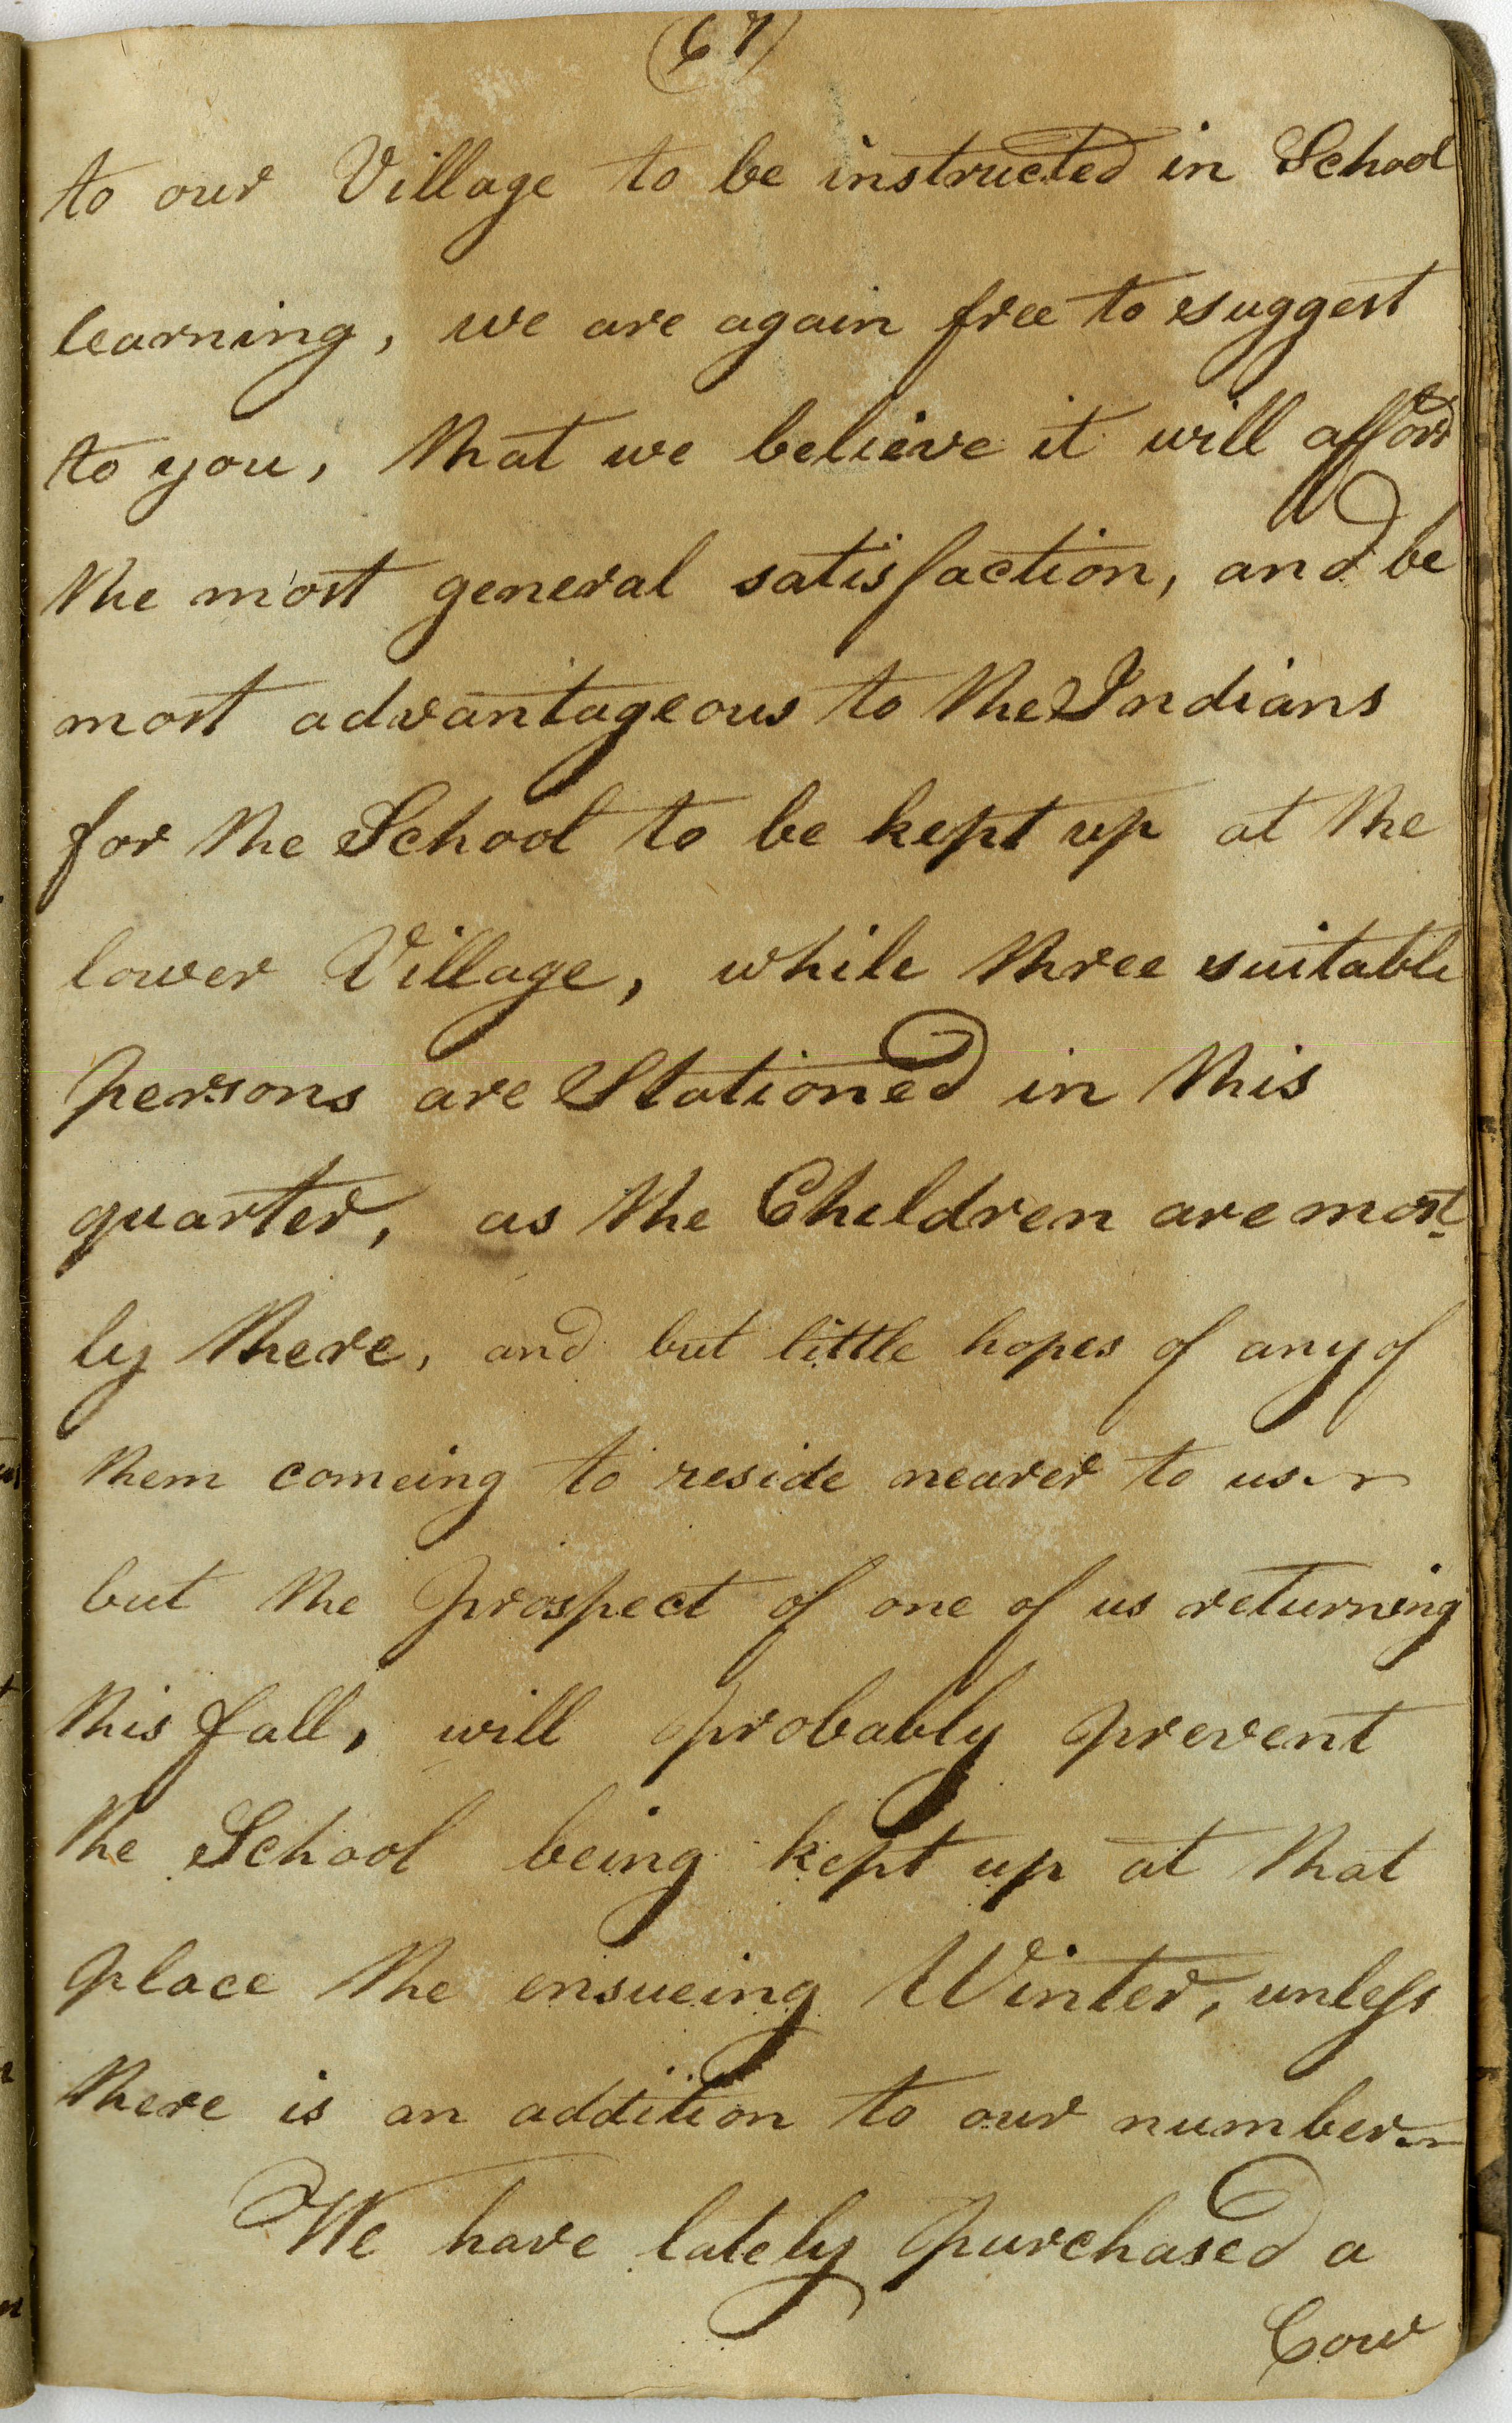 (67)
to our Village to be instructed in School
learning, we are again free to suggest
to you, that we believe it will afford
the most general satisfaction, and be
most advantageous to the Indians
for the School to be kept up at the
lower Village, while three suitable
persons are Stationed in this
quarter, as the Children are most
ly there, and but little hopes of any of
them comeing to reside nearer to us. ~
but the prospect of one of us returning
this fall, will probably prevent
the School being kept up at that
place the ensueing Winter, unless
there is an addition to our number. ~
We have lately purchased a
Cow